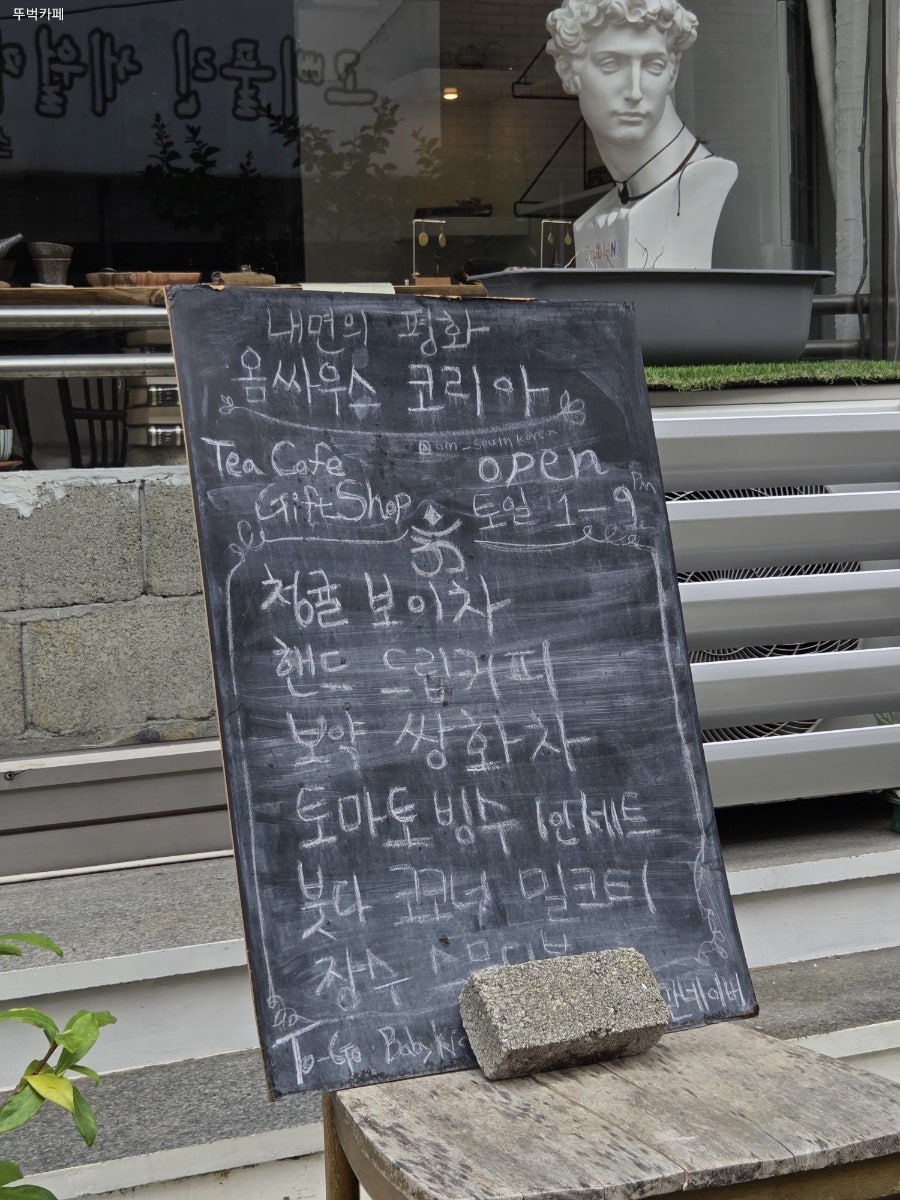 뚜벅카페
내면의 평화
옴싸우스 코리아
@om_south korea
Tea Cafe
open
Gift Shop
토일 1-9 pm
ॐ
청귤 보이차
핸드 드립커피
보약 쌍화차
토마토빙수 1인세트
붓다 코코넛 밀크티
장수
To-Go Baby
네이버